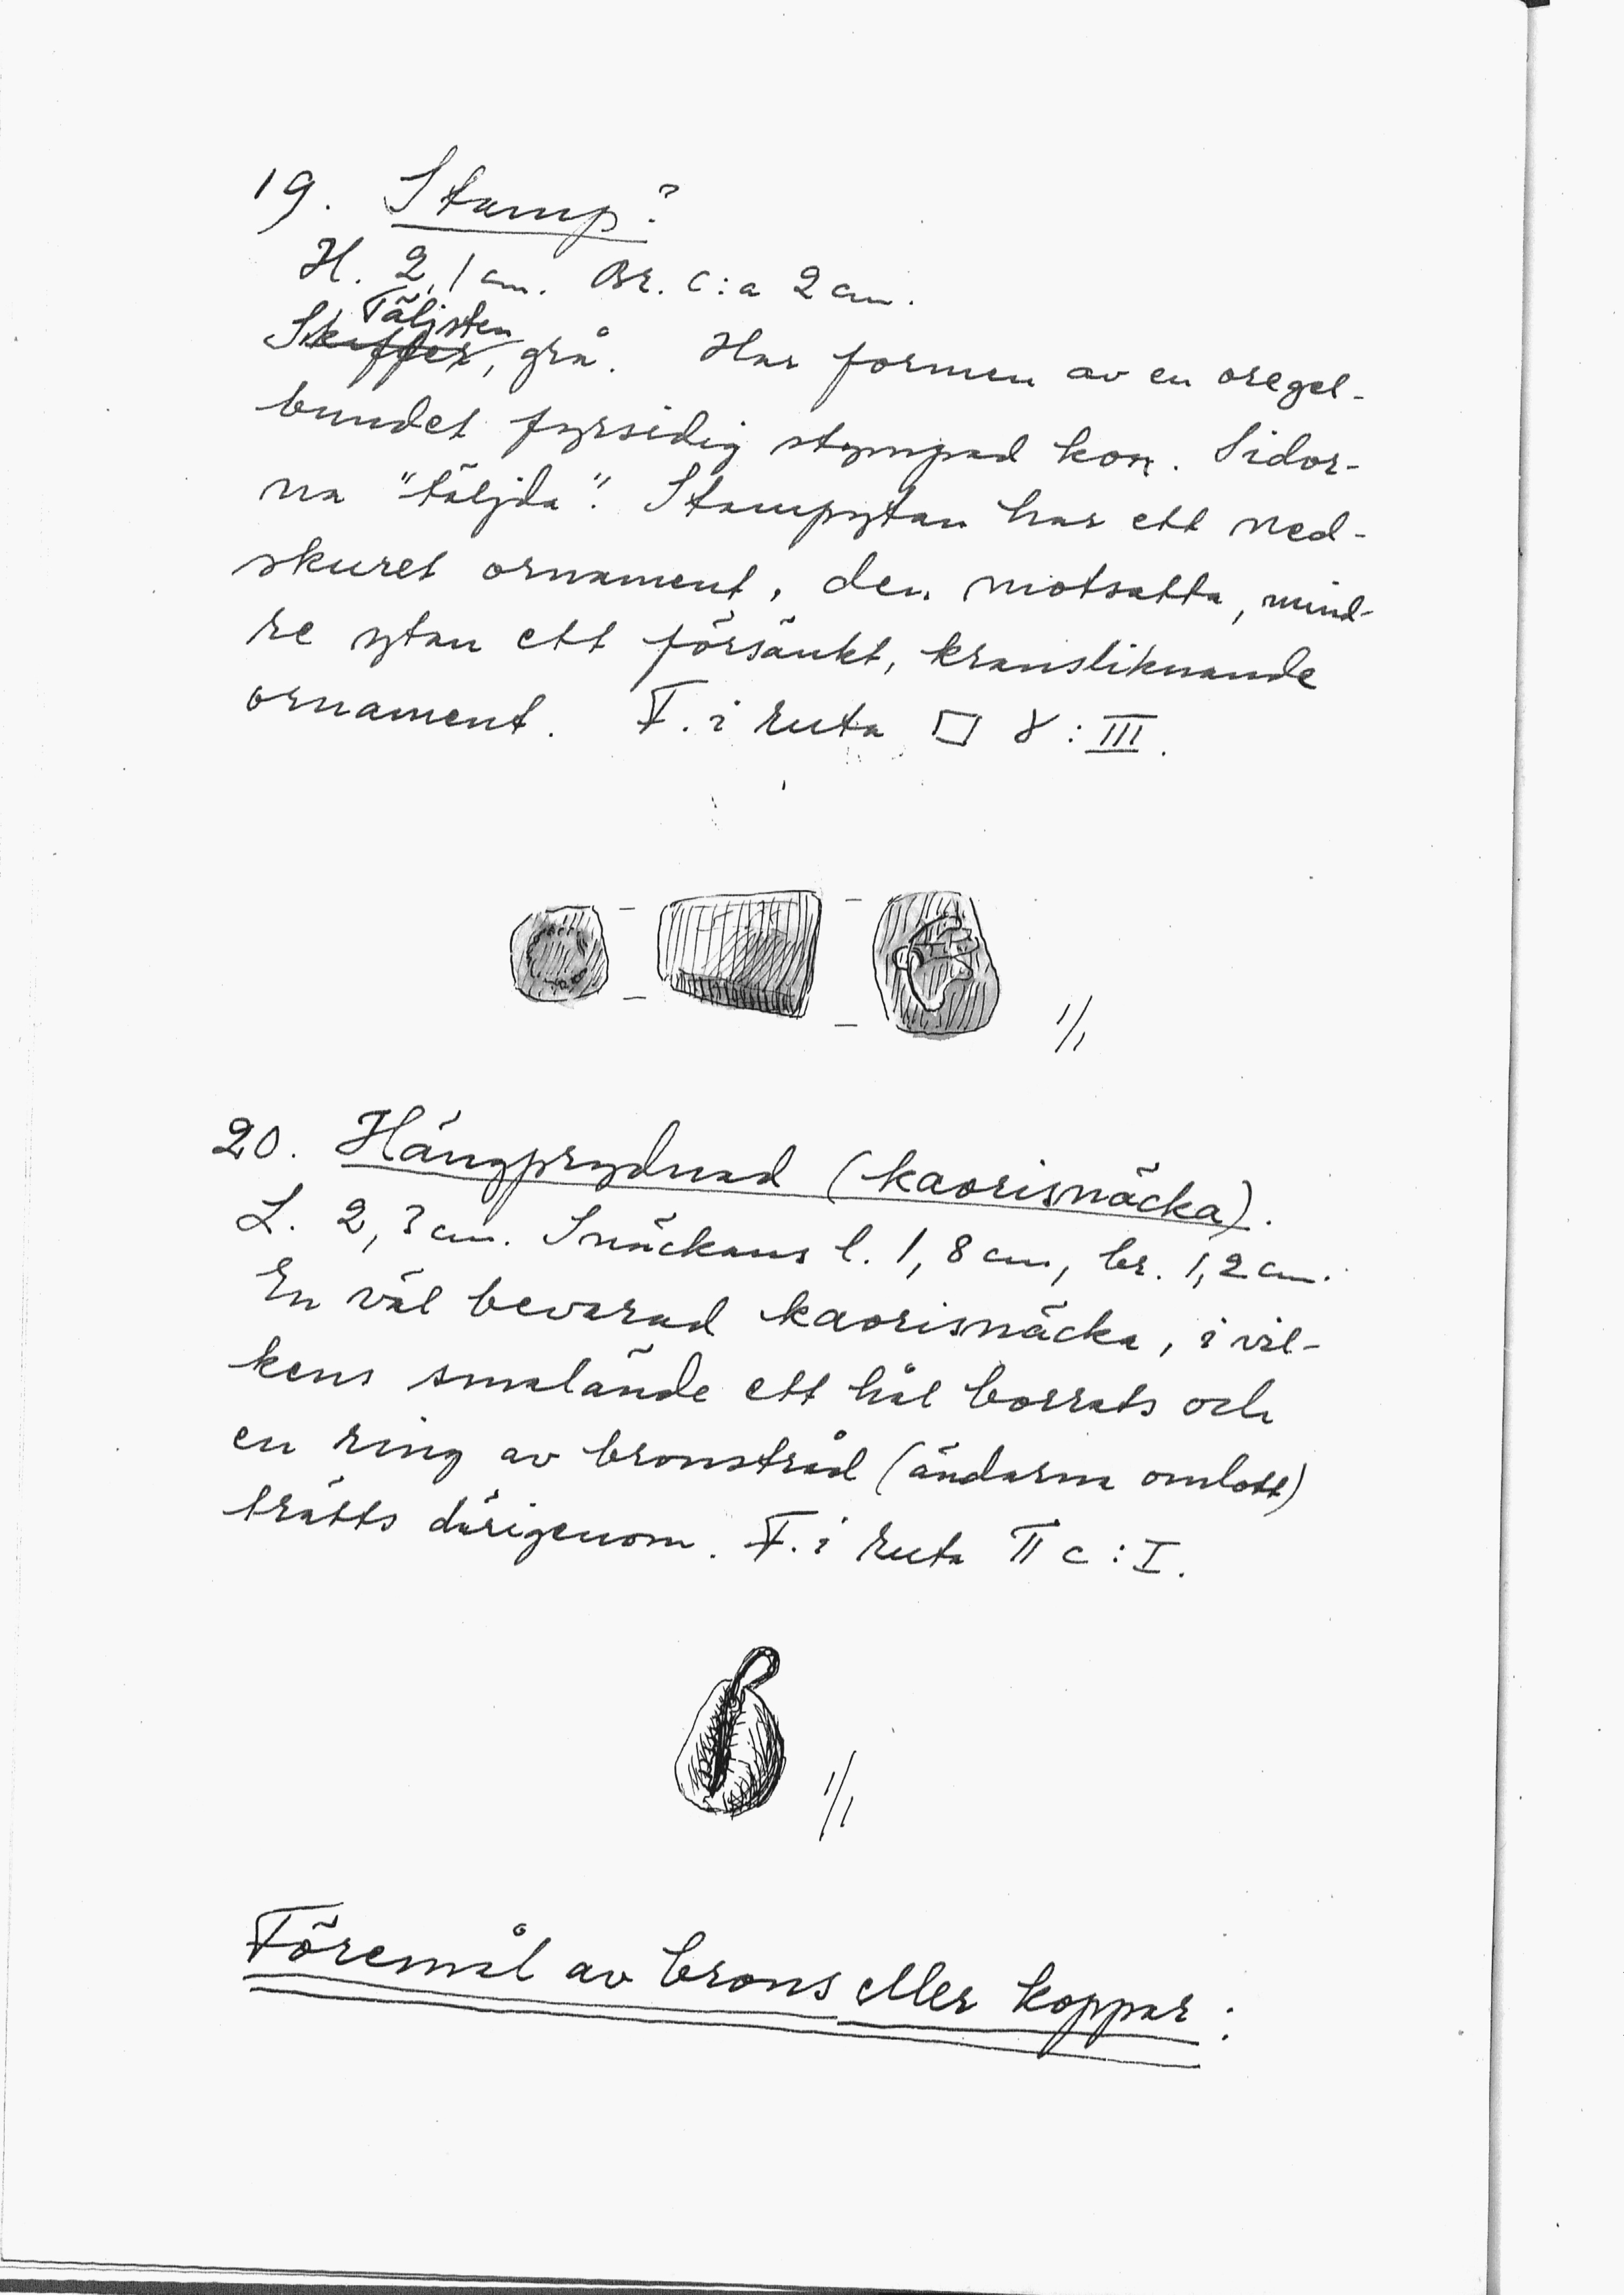 19. Stamp?
H. 2,1 cm. Br. c:a 2 cm.
Täljsten
Skiffer, grå. Har formen av en oregel-
bundet fyrsidig stympad kon. Sidor-
na "täljda". Stampytan har ett ned-
skuret ornament, den motsatta, mind-
re ytan ett försänkt, kransliknande
ornament. F. i ruta □ 8:III.
1/1
20. Hängprydnad (kaorisnäcka).
L. 2,3 cm. Snäckans l. 1,8 cm, br. 1,2 cm.
En väl bevarad kaorisnäcka, i vil-
kens smalände ett hål borrats och
en ring av bronstråd (ändarna omlott)
trätts därigenom. F. i ruta II c:I.
1/1
Föremål av brons eller koppar: